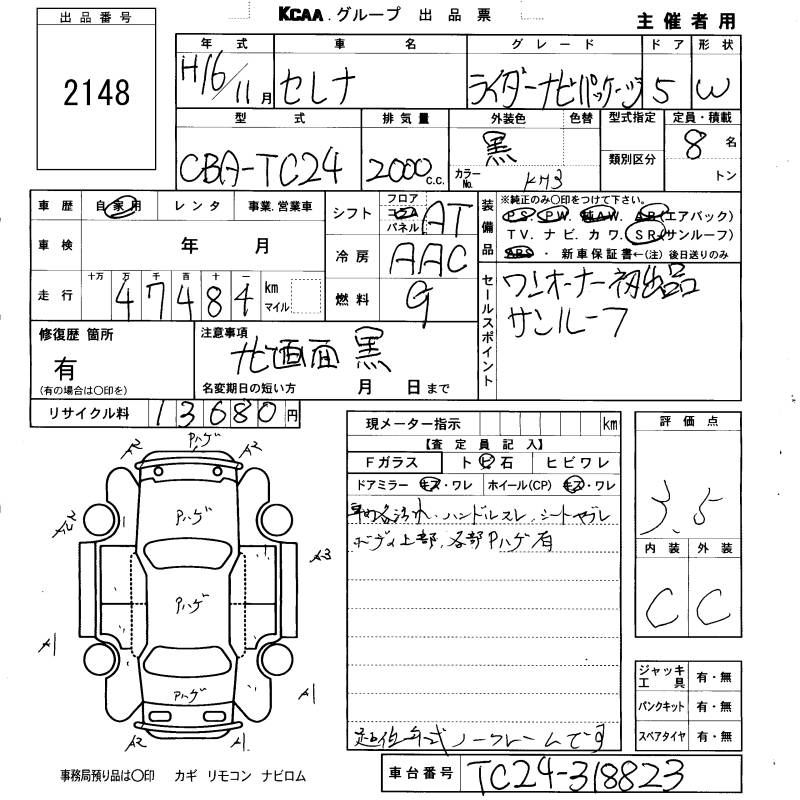 KCAA.グループ 出品票
主催者用
出品番号
2148
年式 車名 グレード ドア 形状
H16/11月 セレナ ライダーナビパッケージ 5 W
型式 排気量 外装色 色替 型式指定 定員・積載
CBA-TC24 2000c.c. 黒 カラーNo. KH3 類別区分 8名
トン
車歴 自家用 レンタ 事業.営業車
シフト フロア コラム パネル AT
装備品 ※純正のみ○印をつけて下さい。
PS. PW. 純AW. AB(エアバック)
TV. ナビ. カワ. SR(サンルーフ)
ABS. 新車保証書←(注) 後日送りのみ
車検 年 月
冷房 AAC
走行 十万 万 千 百 十 一
47484 km マイル
燃料 G
セールスポイント
ワンオーナー初出品
サンルーフ
修復歴 箇所
有
(有の場合は○印を)
注意事項
ナビ画面黒
名変期日の短い方 月 日まで
リサイクル料 13680円
現メーター指示 km
【査定員記入】
Fガラス トビ石 ヒビワレ
ドアミラー キズ・ワレ ホイール(CP) キズ・ワレ
車内各汚れ、ハンドルスレ、シートヤブレ
ボディ上部、各部Pハゲ有
評価点
3.5
内装 外装
C C
ジャッキ工具 有・無
パンクキット 有・無
スペアタイヤ 有・無
A2 Pハゲ A2
Pハゲ
A2
A3
Pハゲ
A1
Pハゲ
A1
A2 A1
年式 ノークレームです
事務局預り品は○印 カギ リモコン ナビロム
車台番号 TC24-318823